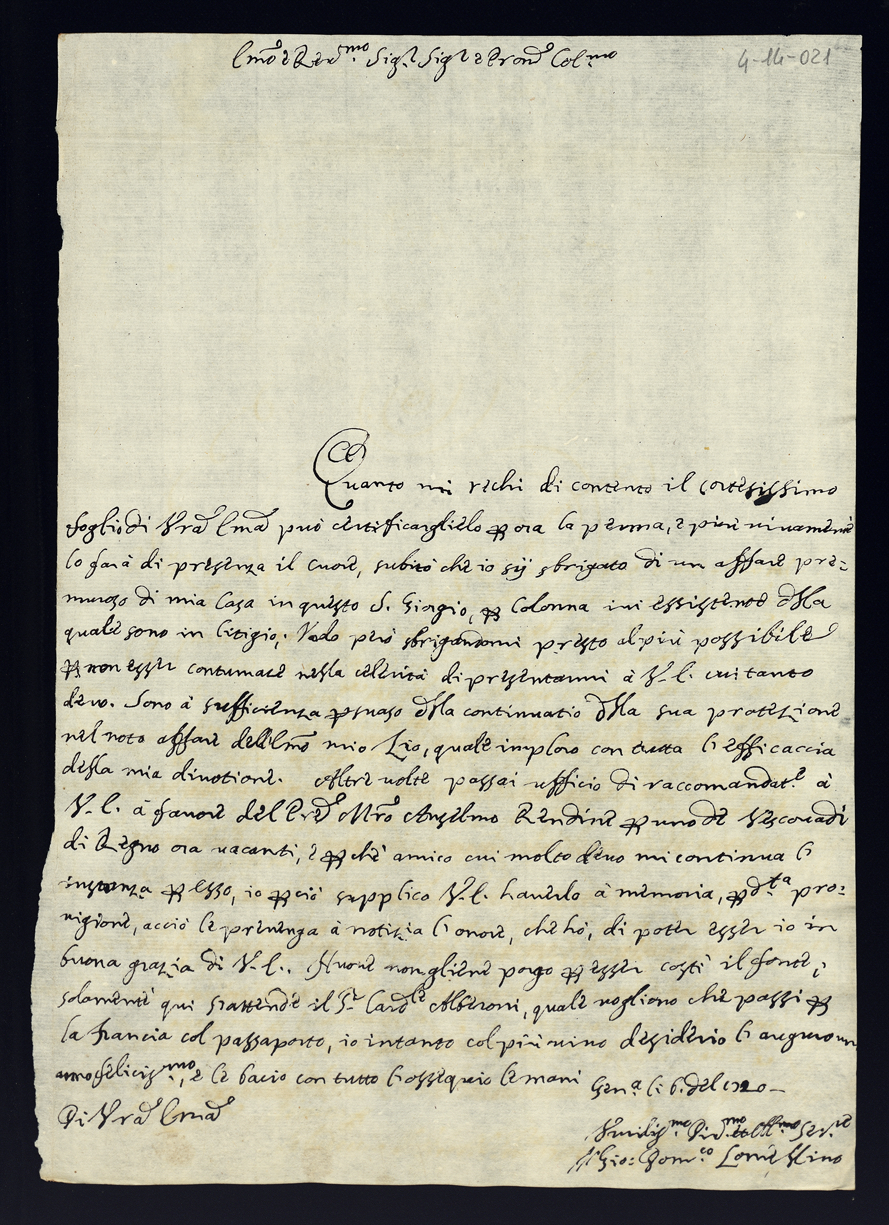 Ill.mo e Rev.mo Sig.r Sig.r e Pron. Col.mo
4-14-021
Quanto mi rechi di contento il cortesissimo
foglio di Vra Illma può certificarglielo per ora la penna, e più vivamente
lo farà di presenza il cuore, subito che io sij sbrigato di un affare pre-
muroso di mia Casa in questo S. Giorgio, per Colonna ivi essistente della
quale sono in litigio; Vado però sbrigandomi presto al più possibile
per non esser contumace nella celerità di presentarmi à V.I. cui tanto
devo. Sono à sufficienza persuaso della continuatio della sua protezione
nel noto affare dell'Illmo mio Zio, quale imploro con tutta l'efficaccia
della mia divotione. Altre volte passai ufficio di raccomandat.e à
V.I. à favore del Pred. Mro Anselmo Rendine per uno de Vescovadi
di Regno ora vacanti, e perche amico cui molto devo mi continua l'
instanza per esso, io perciò supplico V.I. haverlo à memoria, per d.ta pro-
vigione, acciò le prevenga à notizia l'onore, che hò, di poter esser io in
buona grazia di V.I.. Nuove non gliene porgo per esser costì il fonte;
solamente qui s'attende il S.r Card.le Alberoni, quale vogliono che passi per
la Francia col passaporto, io intanto col più vivo desiderio l'auguro un
anno felicis.mo, e le bacio con tutto l'ossequio le mani Gen.a li 6. del 1720 -
Di Vra Illma
Umilis.mo Div.mo et Obl.mo Ser.re
Gio: Dom.co Lomellino